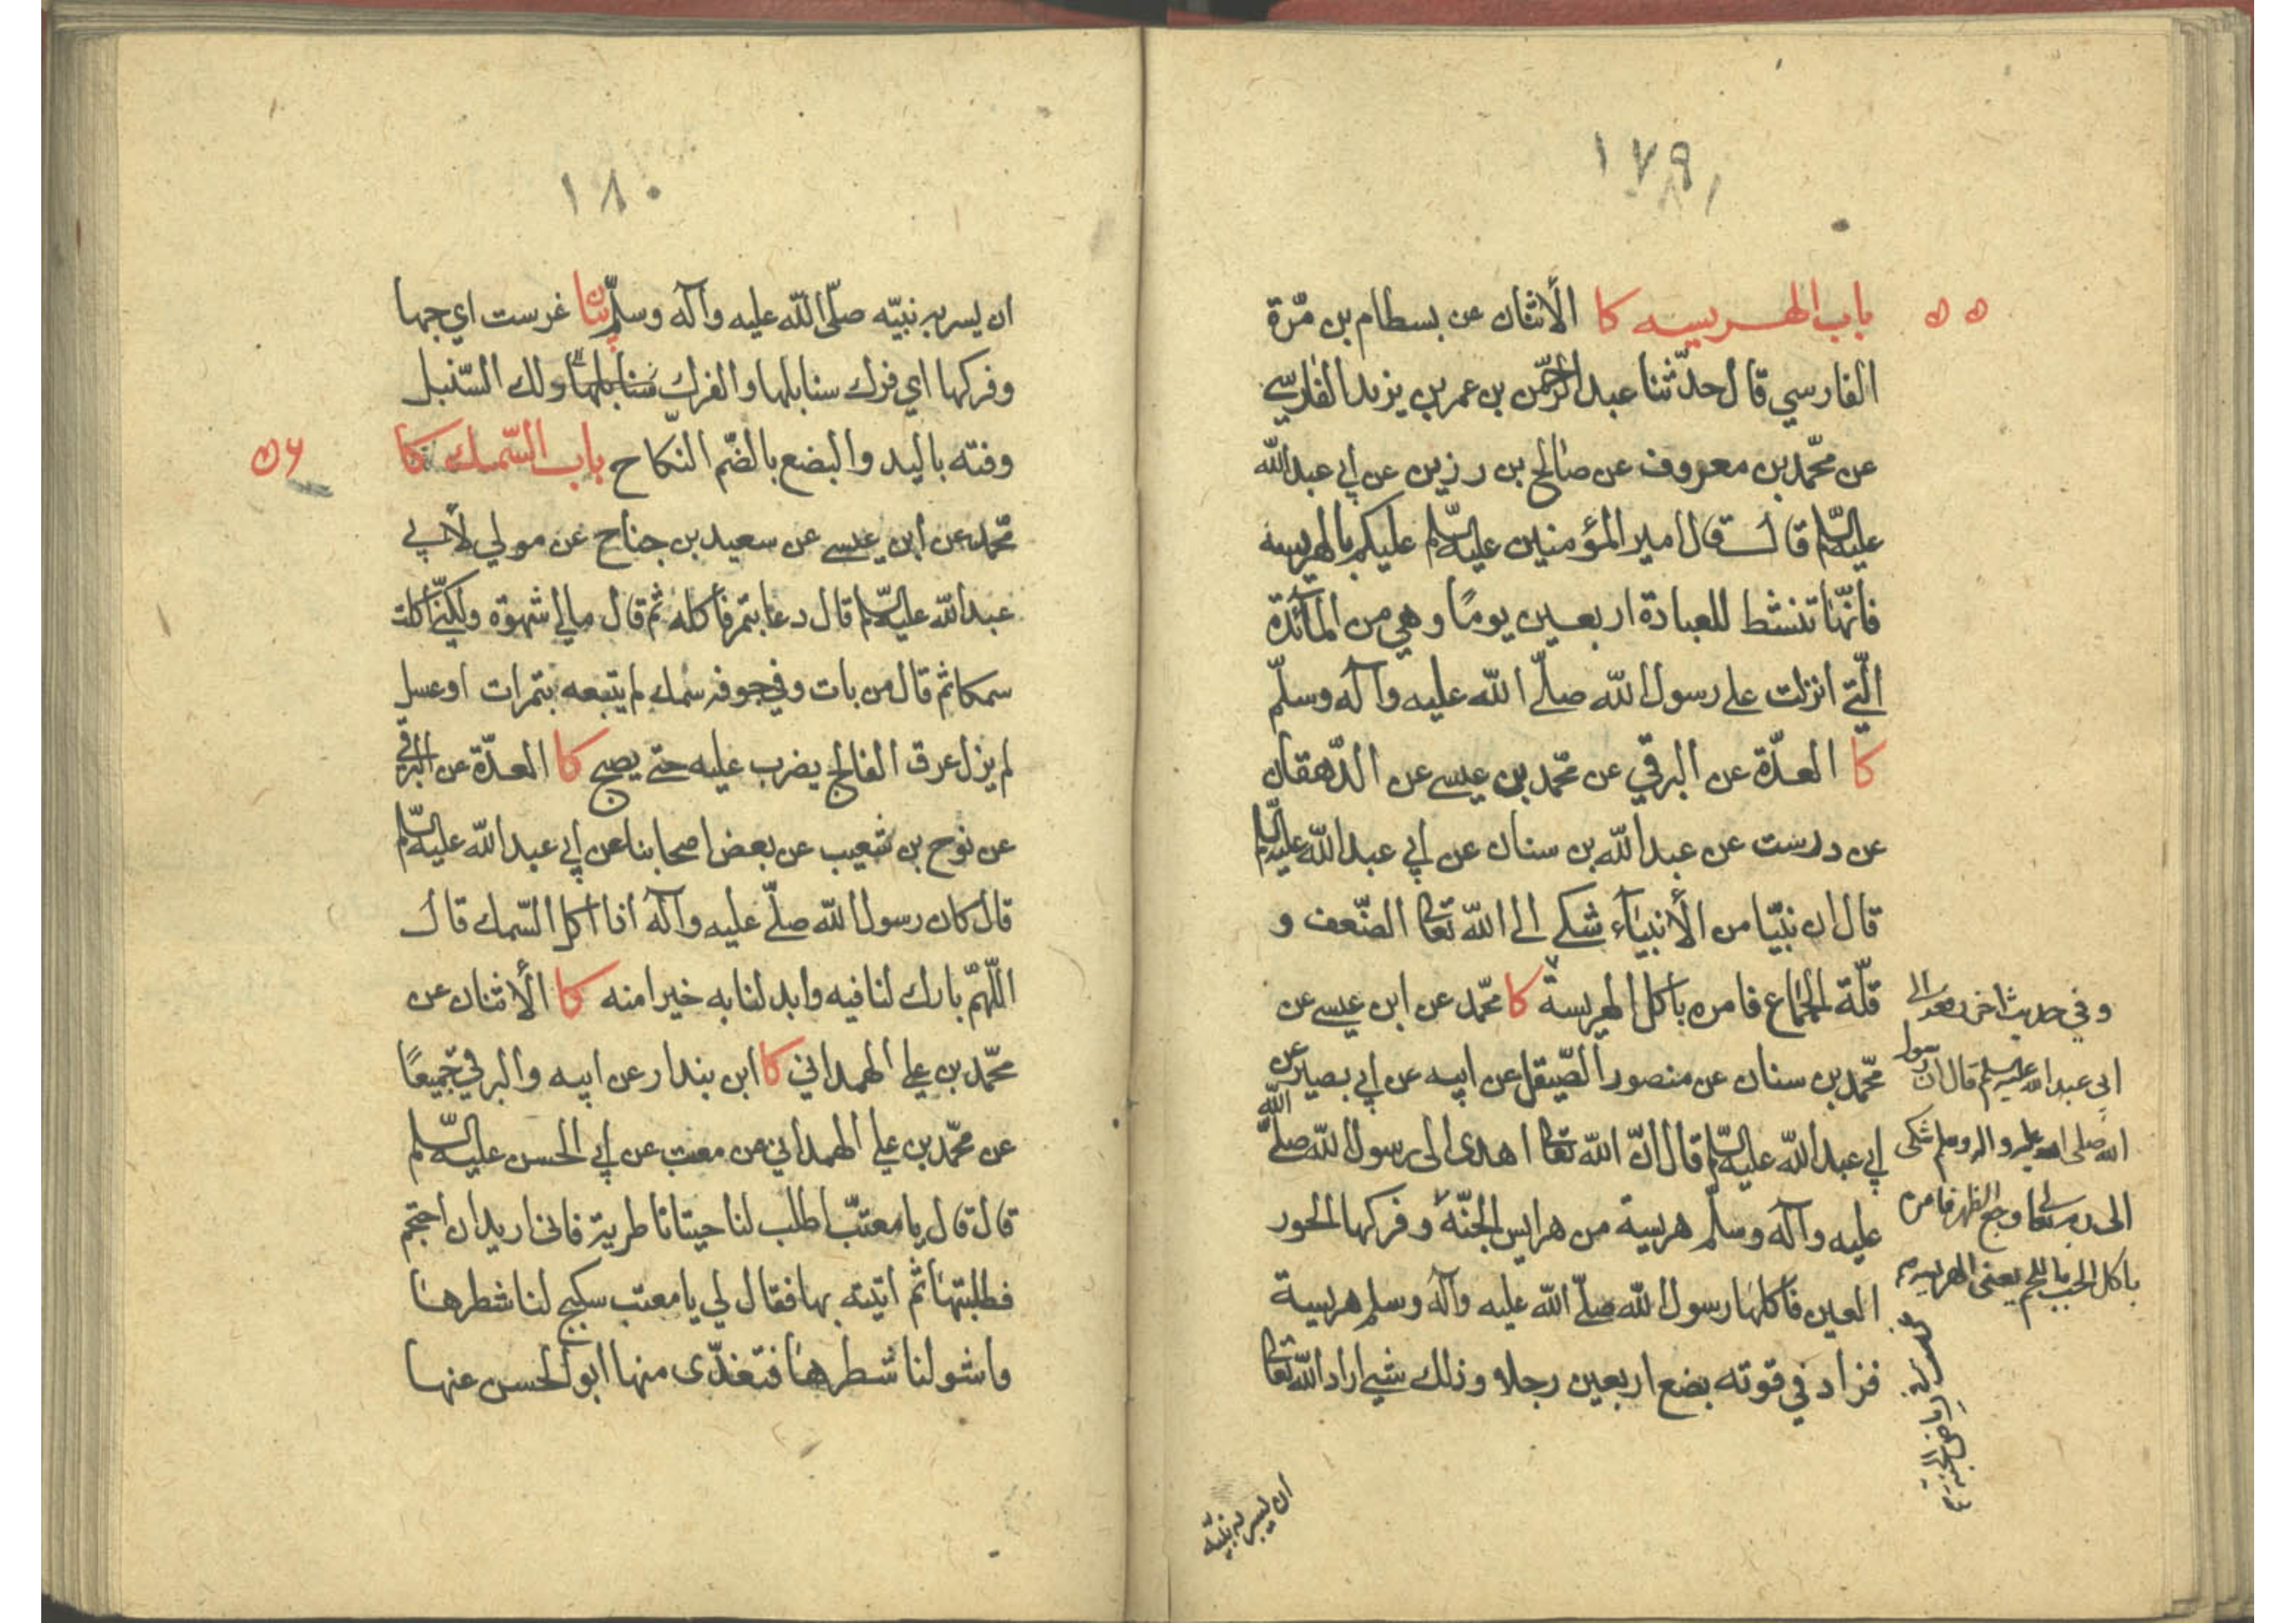 ١٧٩
٥٥
باب الهريسه كا الأثنان عن بسطام بن مرّة
الفارسي قال حدّثنا عبد الرّحمن بن عمر بن يزيد الفارسي
عن محمّد بن معروف عن صالح بن رزين عن أبي عبد الله
عليه السّلم قال قال امير المؤمنين عليه السّلم عليكم بالهريسه
فانّها تنشط للعبادة اربعين يومًا وهي من المآئدة
الّتي أنزلت على رسول الله صلّى الله عليه وآله وسلّم
كا العدّة عن البرقي عن محمّد بن عيسى عن الدّهقان
عن درست عن عبد الله بن سنان عن أبي عبد الله عليه السّلم
قال ان نبيّا من الأنبيآء شكى الى الله تعا الضّعف و
قلّة الجماع فامره باكل الهريسة كا محمّد عن ابن عيسى عن
محمّد بن سنان عن منصور الصّيقل عن ابيه عن أبي بصير عن
أبي عبد الله عليه السّلم قال انّ الله تعا اهدى الى رسول الله صلّى الله
عليه وآله وسلّم هريسة من هرايس الجنّة وفركها الحور
العين فأكلها رسول الله صلّى الله عليه وآله وسلم هريسة
فزاد في قوته بضع اربعين رجلا وذلك شيء اراد الله تعا
وفي حديث اخر رفعه الى
ابي عبد الله عليه السلم قال ان رسول
الله صلى الله عليه واله وسلم شكى
الى ربه تعا وجع الظهر فامره
باكل الحب باللحم يعنى الهريسه
ان يسر به نبيّه
١٨٠
ان يسر به نبيّه صلّى الله عليه وآله وسلّم بيان غرست اي جهها
وفركها اي فرك سنابلها والفرك سنابلها دلك السّنبل
وفته باليد والبضع بالضّم النكاح باب السّمك كا
٥٦
محمّد عن ابن عيسى عن سعيد بن جناح عن مولي لأبي
عبد الله عليه السّلم قال دعا بتمر فأكله ثم قال مالي شهوة ولكنّي أكلت
سمكا ثم قال من بات وفي جوفه سمك لم يتبعه بتمرات او عسل
لم يزل عرق الفالج يضرب عليه حتى يصبح كا العدّة عن البرقي
عن نوح بن شعيب عن بعض اصحابنا عن أبي عبد الله عليه السّلم
قال كان رسول الله صلّى عليه وآله اذا أكل السّمك قال
اللّهمّ بارك لنا فيه وابد لنا به خيرا منه كا الأثنان عن
محمّد بن علي الهمداني كا ابن بندار عن ابيه والبرقي جميعًا
عن محمّد بن علي الهمداني عن معتب عن أبي الحسن عليه السّلم
قال قال يا معتّب اطلب لنا حيتانا طرية فانى اريد ان احتجم
فطلبتها ثم اتيته بها فقال لي يا معتب سكبج لنا شطرها
واشو لنا شطرها فتغدّى منها ابو الحسن عنها